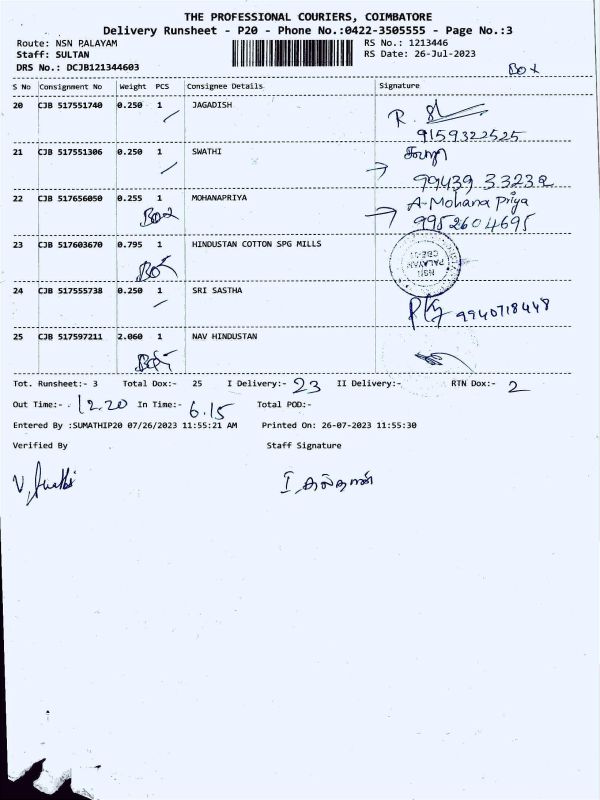 THE PROFESSIONAL COURIERS, COIMBATORE
Delivery Runsheet - P20 - Phone No.:0422-3505555 - Page No.:3
Route: NSN PALAYAM RS No.: 1213446
Staff: SULTAN RS Date: 26-Jul-2023
DRS No.: DCJB121344603
Box
S No Consignment No Weight PCS Consignee Details Signature
20 CJB 517551740 0.250 1 JAGADISH R.
9159322525
21 CJB 517551306 0.250 1 SWATHI
99439 33232
22 CJB 517656050 0.255 1 MOHANAPRIYA A-Mohana Priya
Box 9952604695
23 CJB 517603670 0.795 1 HINDUSTAN COTTON SPG MILLS
Box NSN PALAYAM
24 CJB 517555738 0.250 1 SRI SASTHA
9940718448
25 CJB 517597211 2.060 1 NAV HINDUSTAN
Box
Tot. Runsheet:- 3 Total Dox:- 25 I Delivery:- 23 II Delivery:- RTN Dox:- 2
Out Time:- 12.20 In Time:- 6.15 Total POD:-
Entered By :SUMATHIP20 07/26/2023 11:55:21 AM Printed On: 26-07-2023 11:55:30
Verified By Staff Signature
I. சுல்தான்